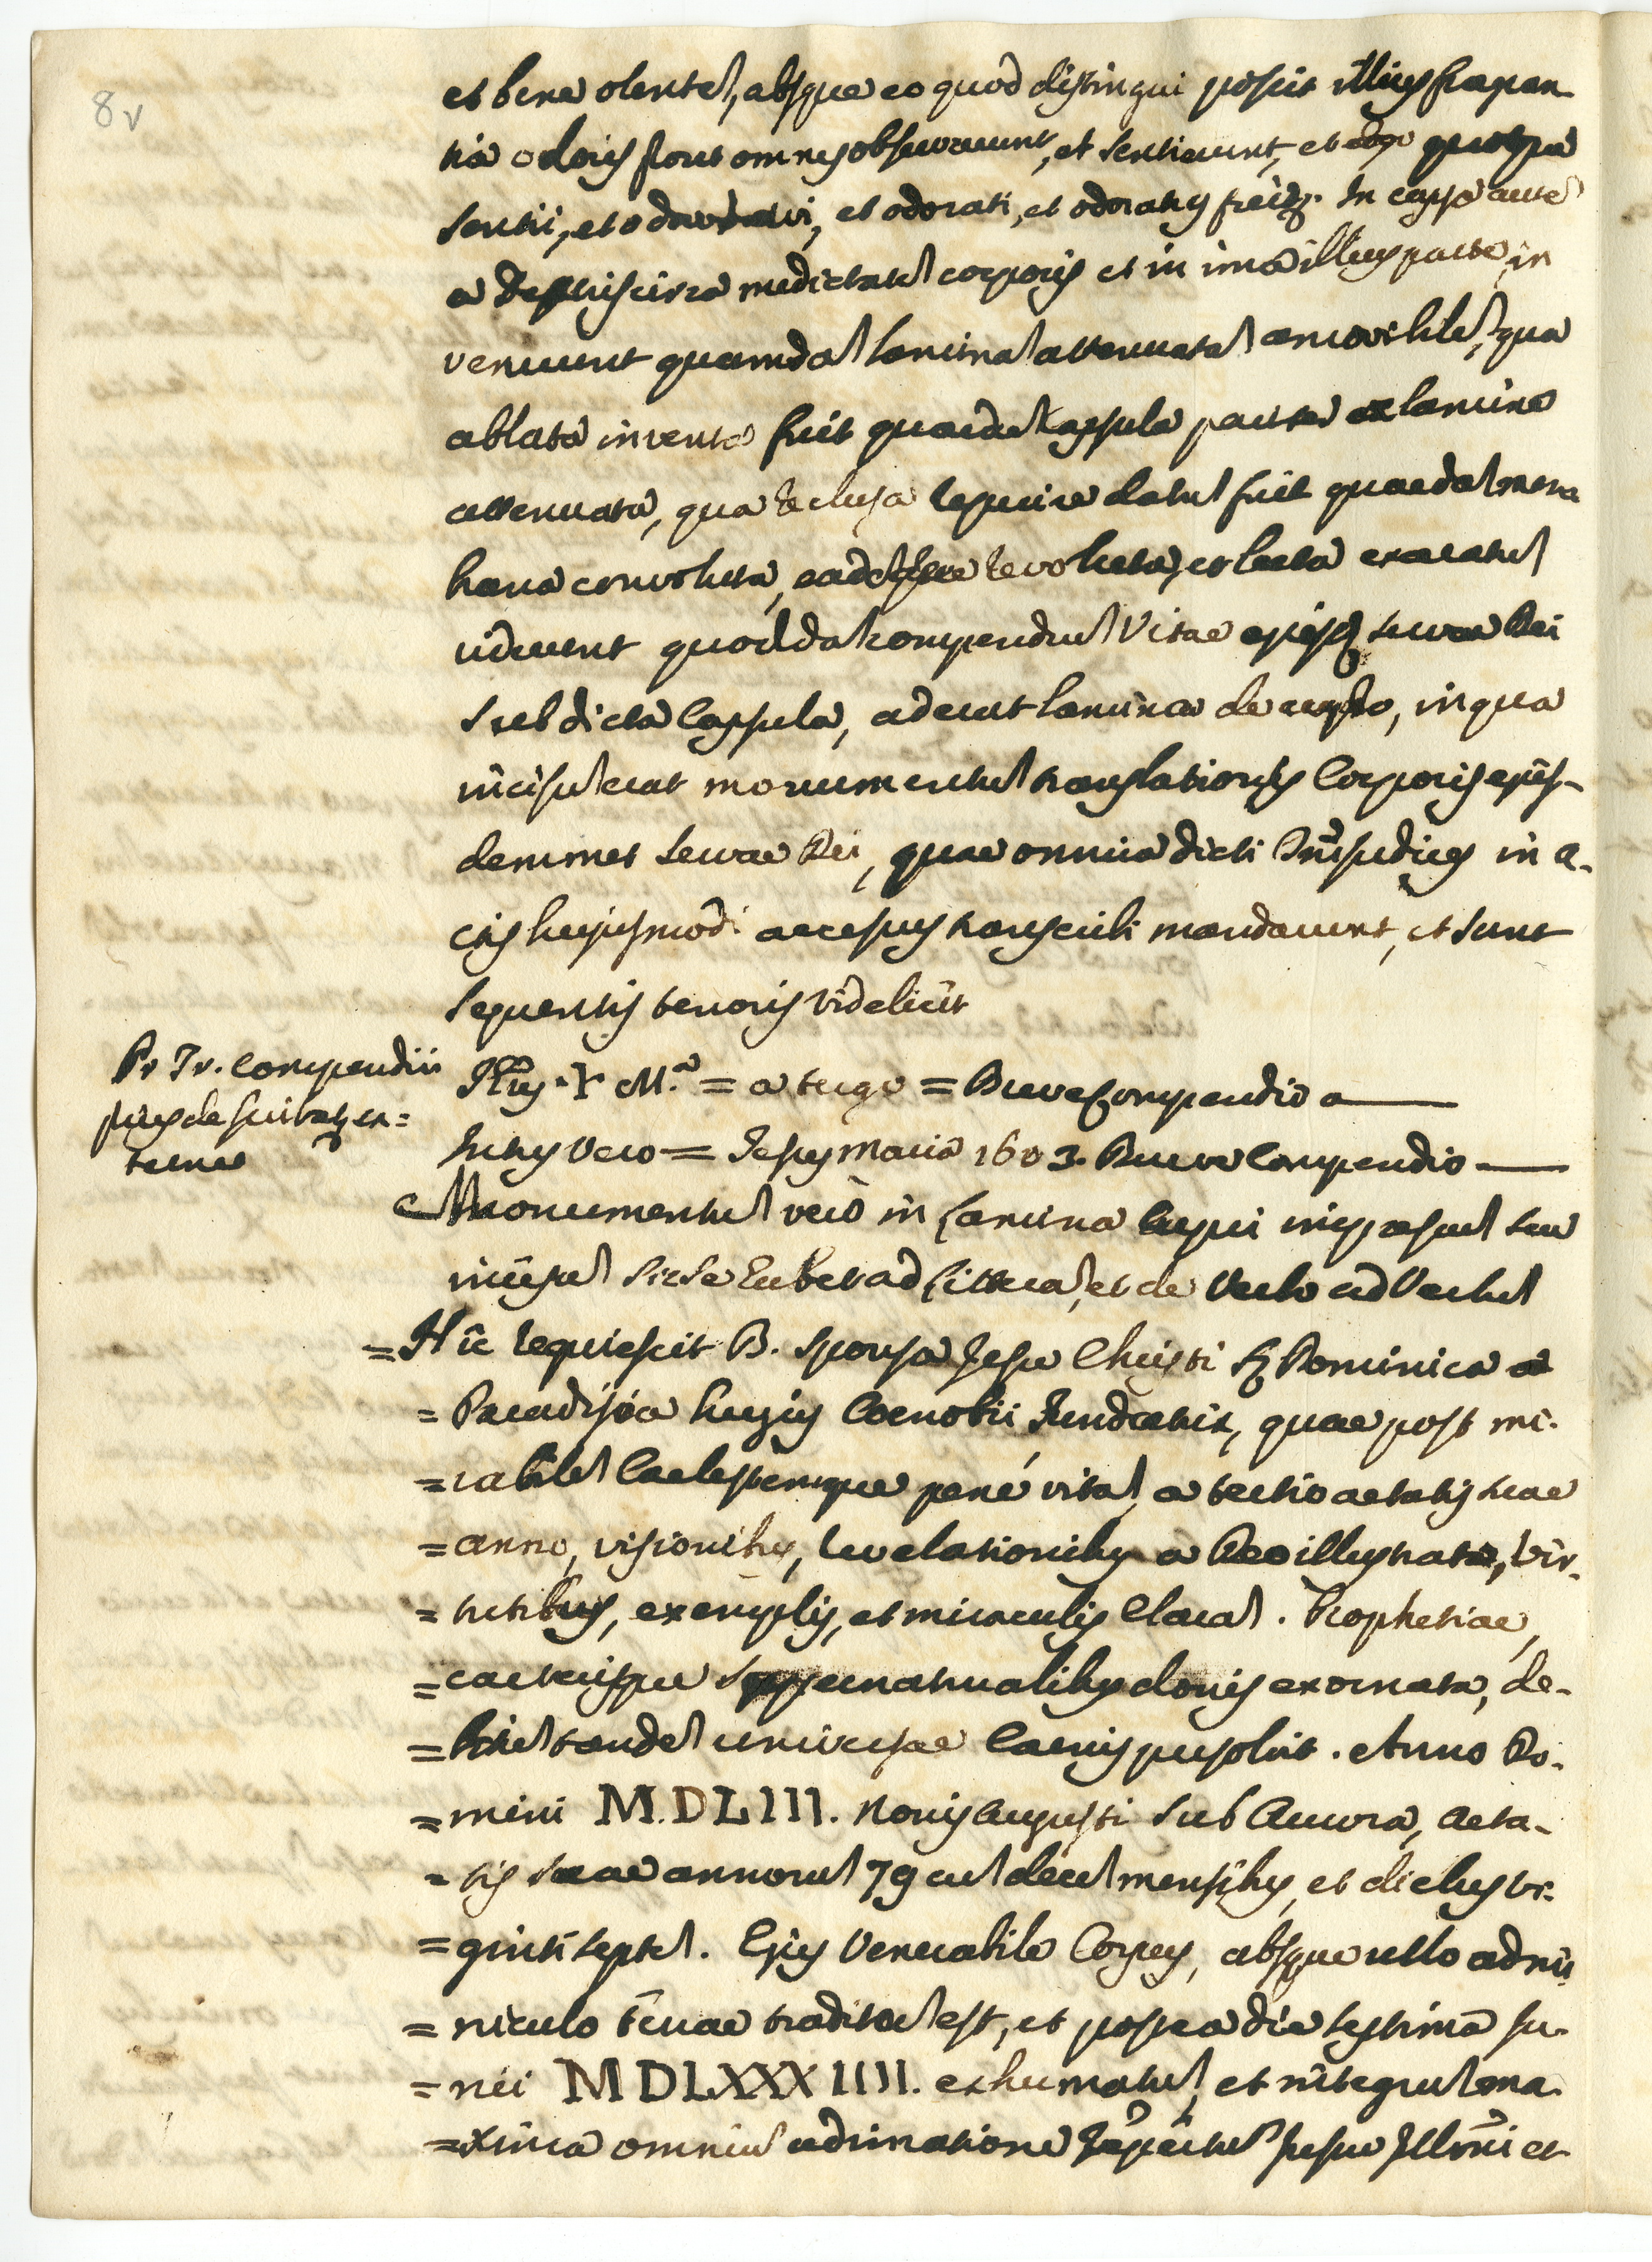 8v
et bene olente, absque eo quod distingui possit illius fragran
tia odoris prout omnes observaverunt, et sentierunt, et ego quoque
sentii, et odoravi, et odorati, et odoratus fuit. In capsa aute
a dextris circa medietate corporis et in ima illius parte, in
venerunt quamda lamina attenuata amovibile, qua
ablata inventa fuit quaeda Capsula pariter ex lamina
attenuata, qua reclusa reperire datu fuit quaeda mem
brana convoluta, eademque revoluta, et lecta exaratu
viderunt quodda compendiu Vitae ejusd servae Dei
Sub dicta Capsula, aderat lamina de cupro, in qua
incisu erat monumentu translationis Corporis ejus-
demmet servae Dei, quae omnia dicti Dni Judices in a-
ctis hujusmodi accessus transcribi mandarunt, et sunt
sequentis tenoris videlicet
Pr Tr. Compendii
prius de scripturis ex=
ternae
Jhus. + M.a = a tergo = Breve Compendio a
Intus vero = Jesus Maria 1603. Breve Compendio
Monumentu vero in Lamina cupri impressu seu
incisu sic se habet ad littera, et de verbo ad verbu
=Hic requiescit B. Sponsa Jesu Christi Sr Dominica a
= Paradiso a hujus Coenobii Fundatrix, quae post mi-
=rabile Caelestemque pené vita, a tertio aetatis suae
=anno, visionibus, revelationibus a Deo illustrata, vir-
= tutibus, exemplis, et miraculis Clara. Prophetiae,
=caeterisque supernaturalibus donis exornata, de-
=bitu tande universae Carnis persolvit. Anno Do-
=mini M.DLIII. Nonis Augusti sub Aurora, aeta-
= tis suae annoru 79 cu dece mensibus, et diebus vi-
=ginti septe. Ejus Venerabile Corpus, absque ullo admi
= niculo terrae traditu est, et postea die septima Ju-
= nii MDLXXXIIII. exhumatu, et integru ma-
=xima omniu admiratione repertu jussu Illmi et